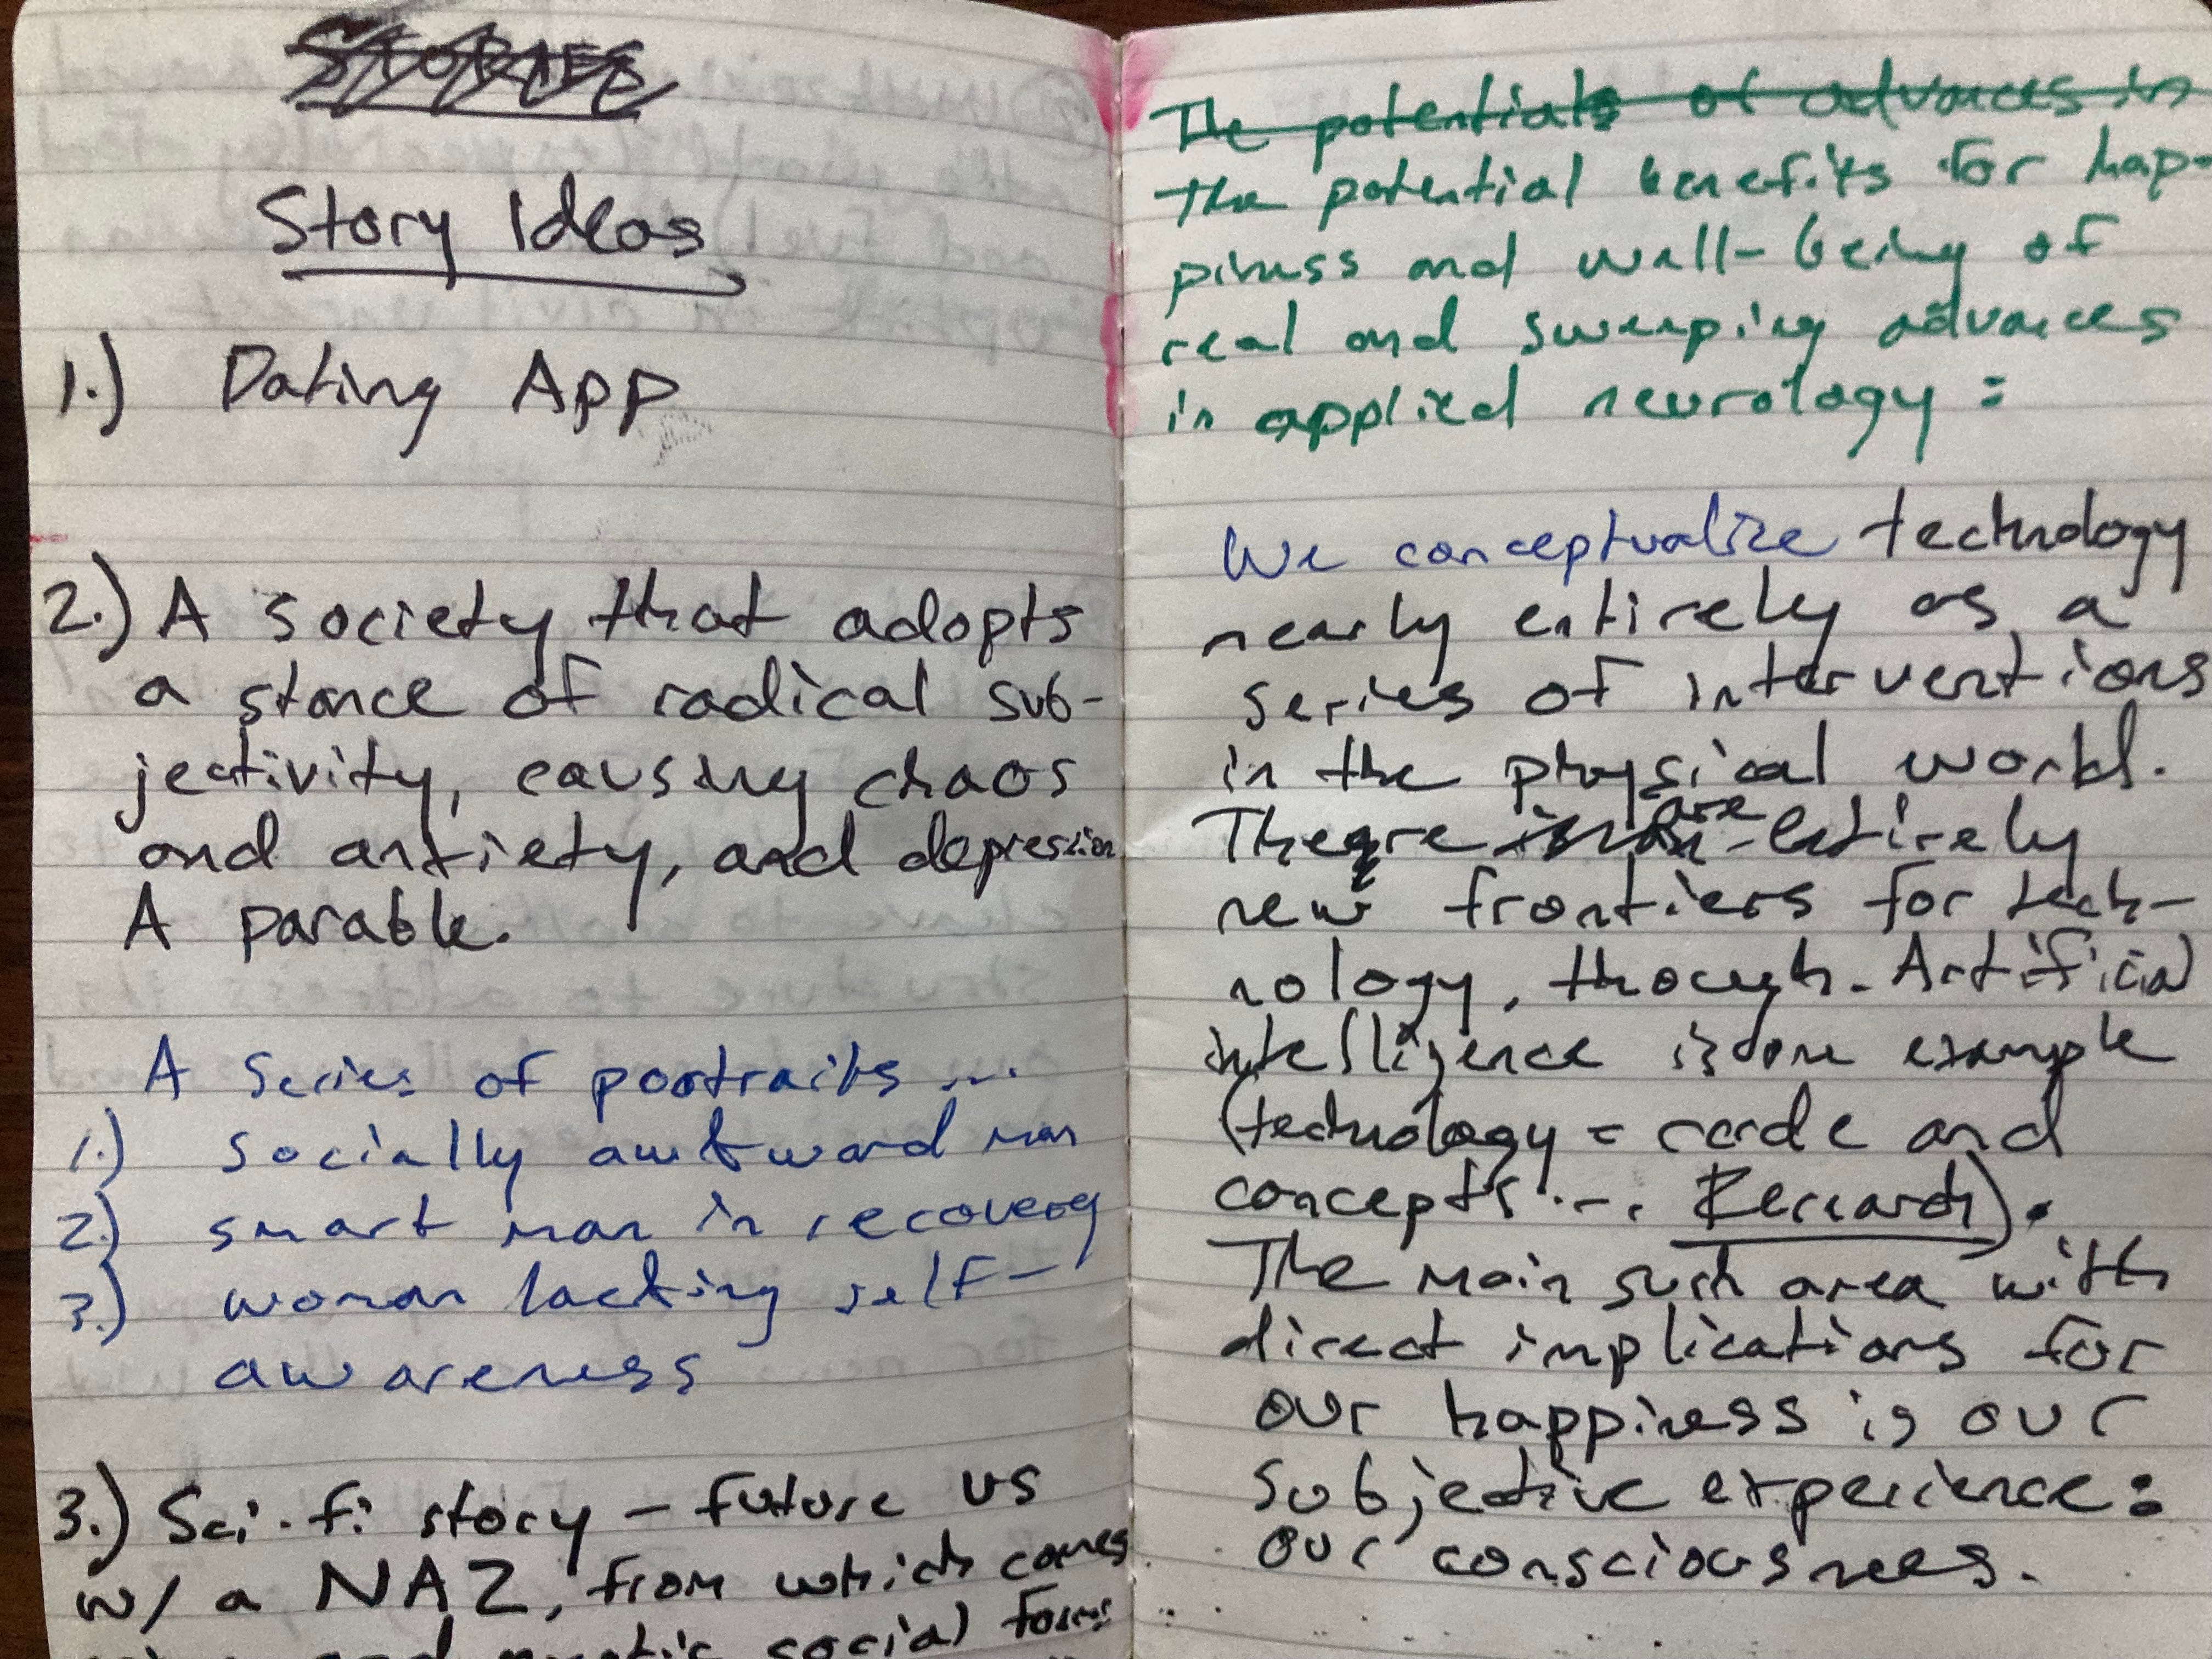 STORIES
Story Ideas
1.) Dating App
2.) A society that adopts
a stance of radical sub-
jectivity, causing chaos
and anxiety, and depression
A parable.
A series of portraits ...
1.) socially awkward man
2.) smart man in recovery
3.) woman lacking self-
awareness
3.) Sci-fi story - future US
w/ a NAZ, from which comes
and social forms
The potentials of advances in
The potential benefits for hap-
piness and well-being of
real and sweeping advances
in applied neurology:
We conceptualize technology
nearly entirely as a
series of interventions
in the physical world.
There are entirely
new frontiers for tech-
nology, though. Artificial
intelligence is one example
(technology = code and
concepts ... Research).
The main such area with
direct implications for
our happiness is our
subjective experience:
our consciousness.